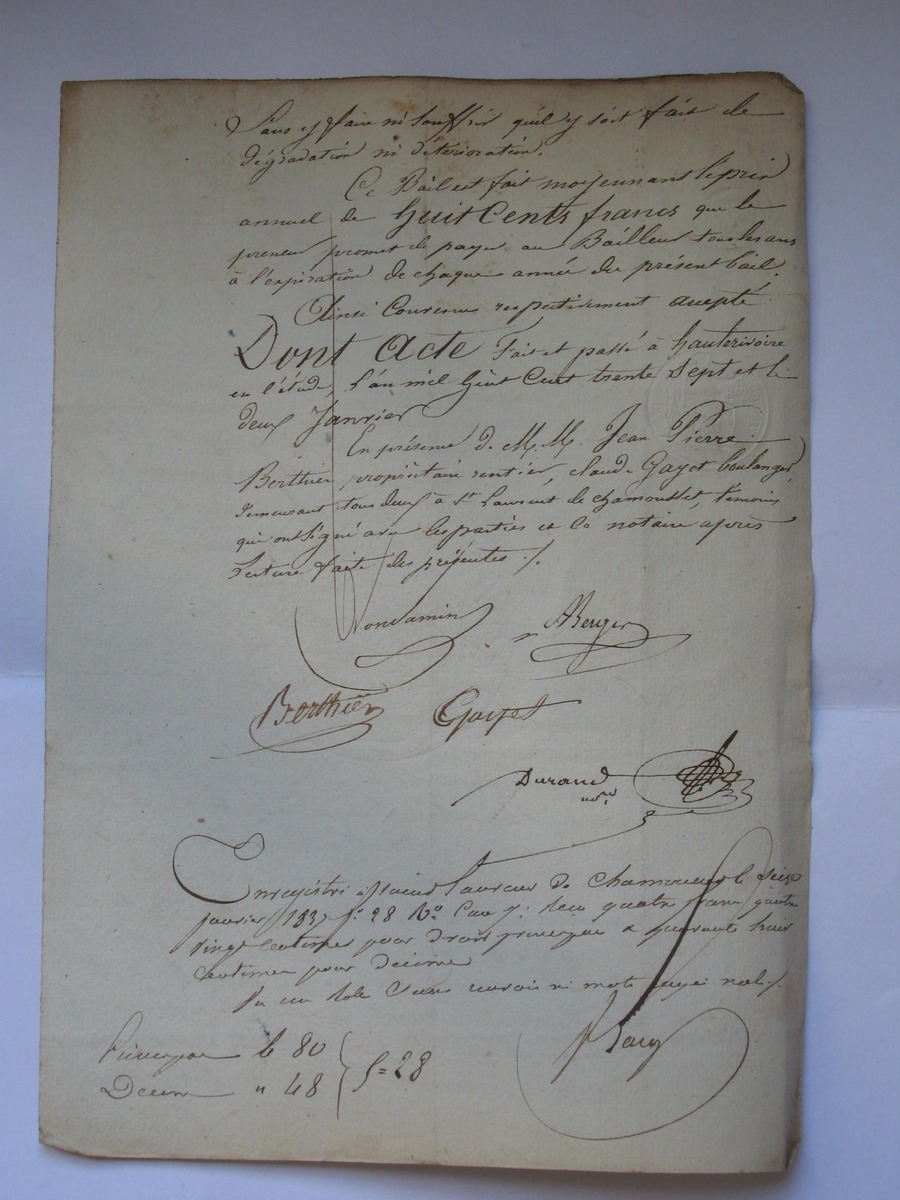 Sans y faire ni souffrir qu'il y soit fait de
dégradation ni détérioration.
Ce Bail est fait moyennant le prix
annuel de huit Cents francs que le
preneur promet de payer au Bailleur tous les ans
à l'expiration de chaque année du présent bail.
Ainsi Convenu respectivement accepté
Dont Acte fait et passé à hauterivoire
en l'étude, l'an mil huit Cent trente Sept et le
deux Janvier
En présence de M.M. Jean Pierre
Berthier propriétaire rentier, claude Gayet boulanger,
demeurant tous deux à St Laurent de chamousset, témoins
qui ont signé avec les parties et le notaire après
lecture faite des présentes ./.
ABerger
Berthier Gayet
Durand
Enregistré à Saint Laurent de Chamousset le Seize
janvier 1837 fo. 28 Vo. Case 7: Reçu quatre francs quatre
vingt Centimes pour droit principal & quarante huit
Centimes pour décime
Vu un role Sans renvois ni mots rayés nuls ./.
Principal 4. 80
Décime " 48 } 5=28